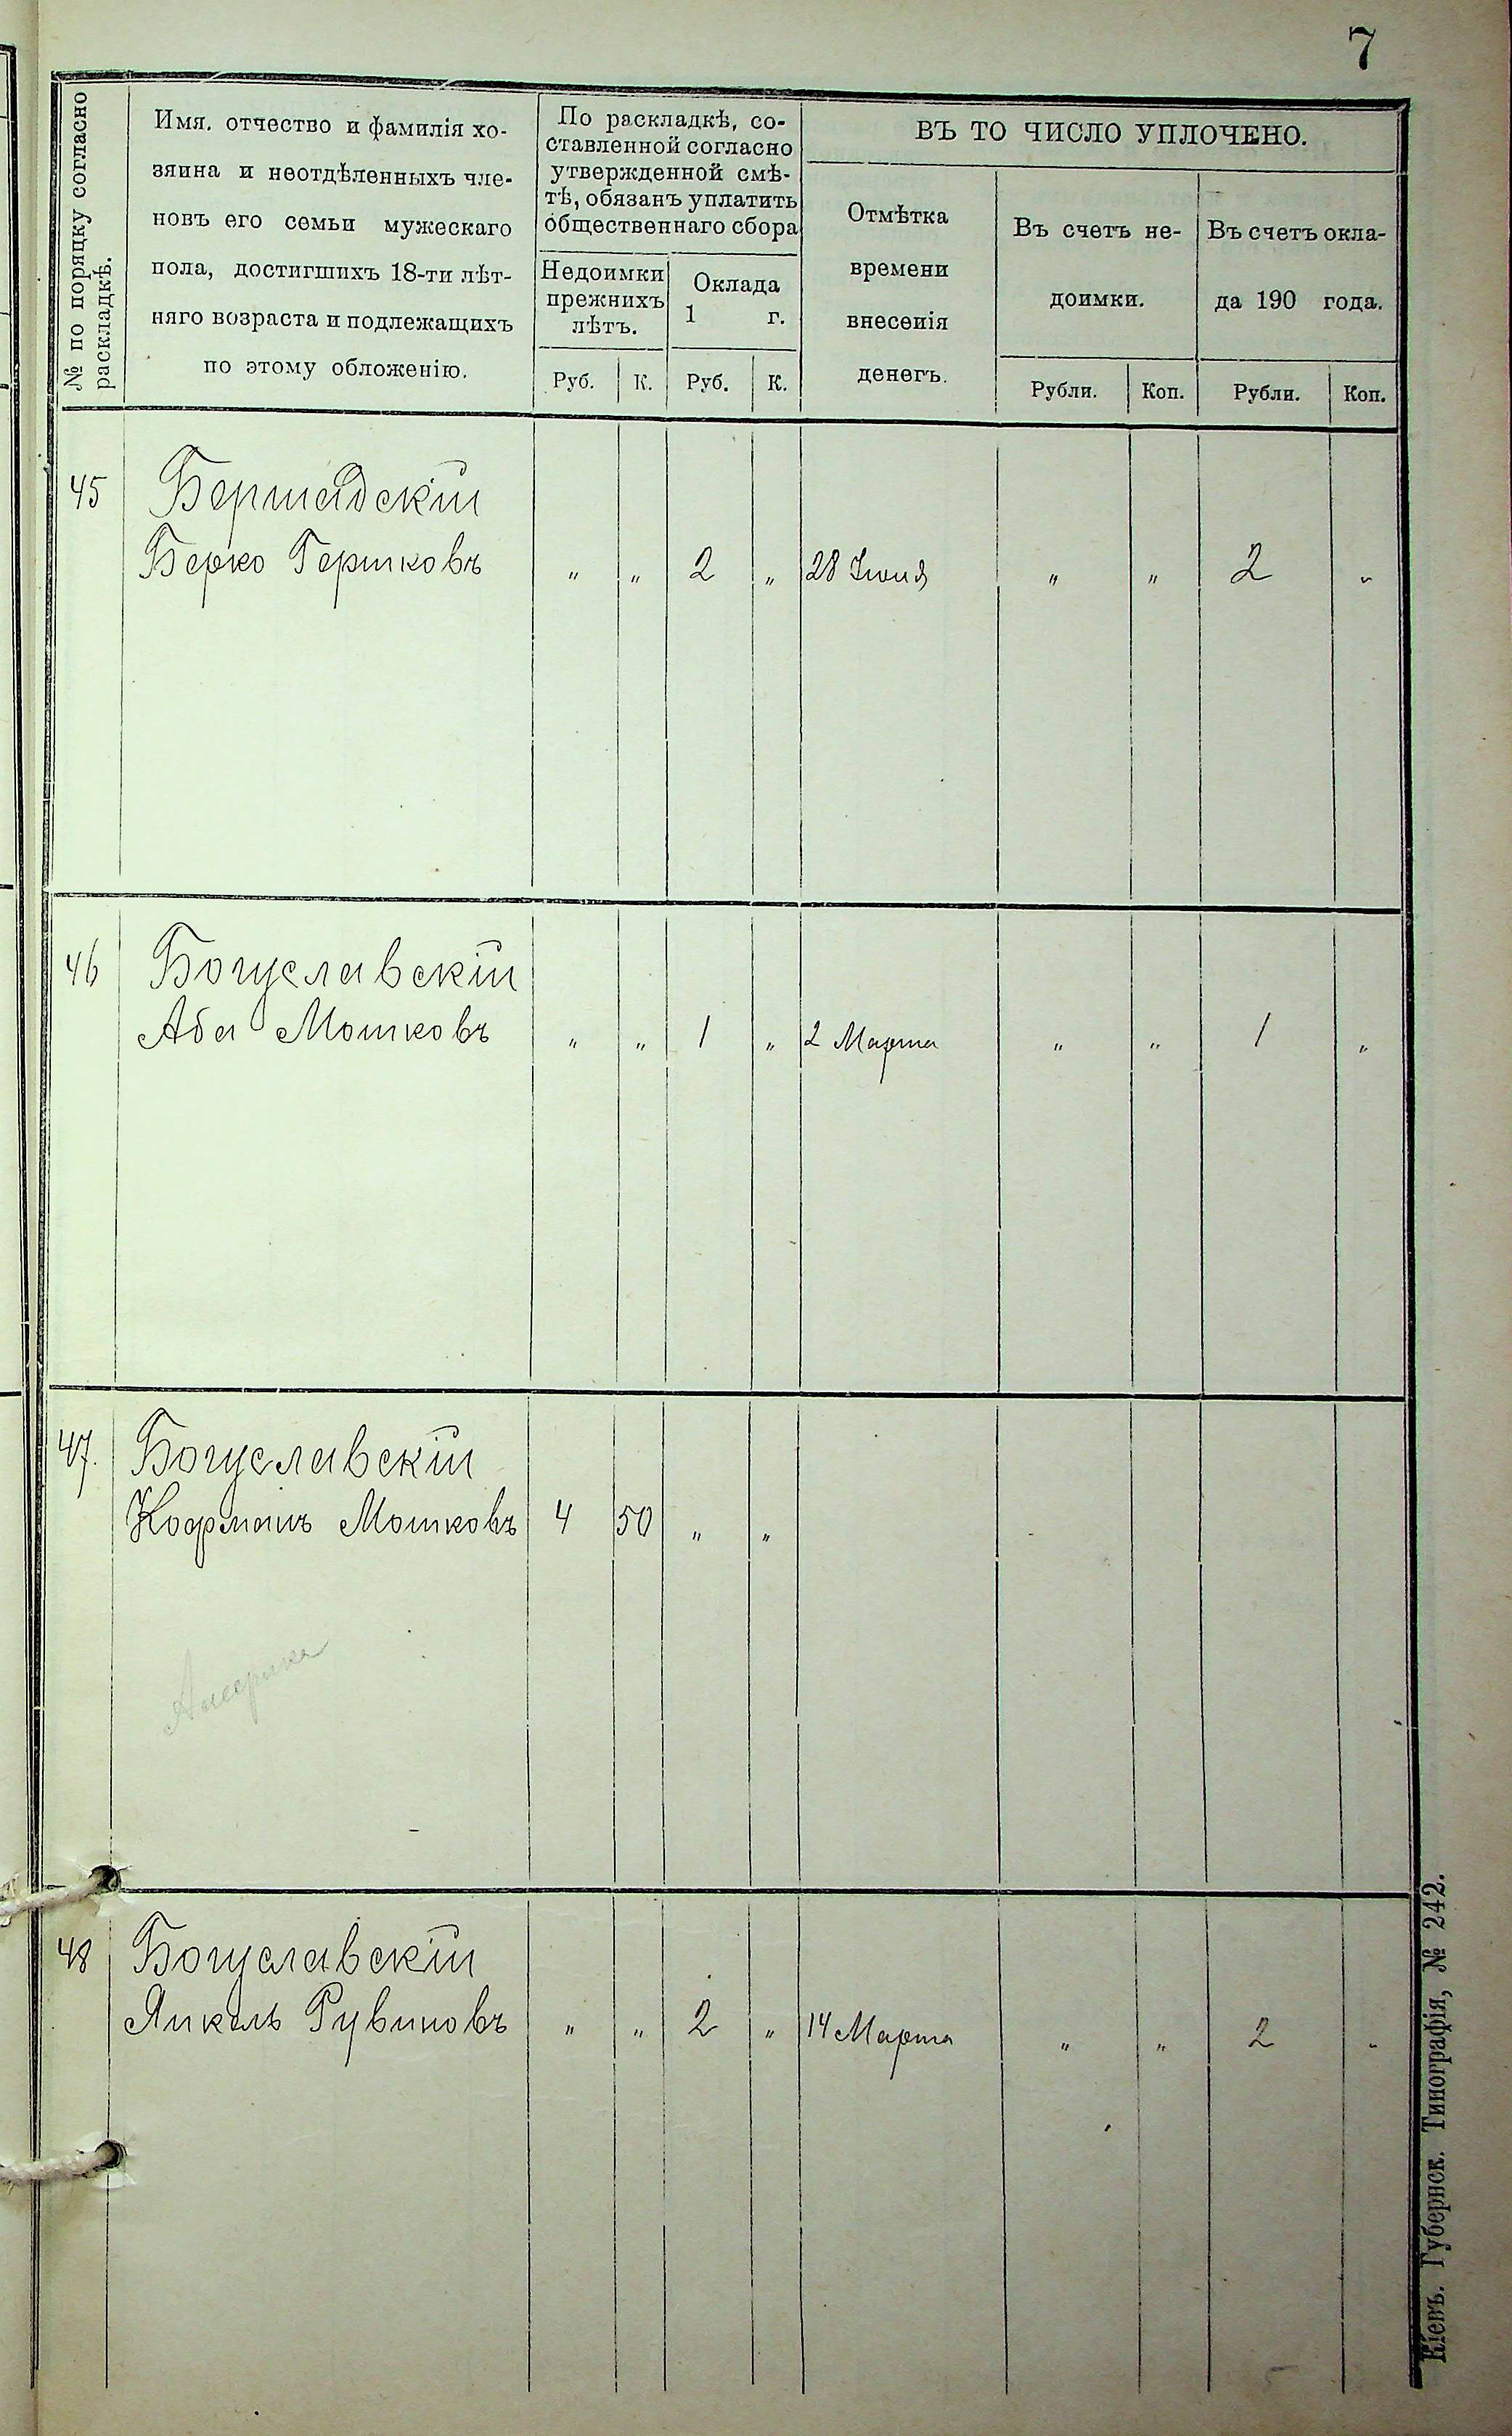 7
№ по порядку согласно
раскладкѣ.
Имя, отчество и фамилія хо-
зяина и неотдѣленныхъ чле-
новъ его семьи мужескаго
пола, достигшихъ 18-ти лѣт-
няго возраста и подлежащихъ
по этому обложенію.
По раскладкѣ, со-
ставленной согласно
утвержденной смѣ-
тѣ, обязанъ уплатить
общественнаго сбора
Недоимки
прежнихъ
лѣтъ.
Оклада
1 г.
Руб. К. Руб. К.
ВЪ ТО ЧИСЛО УПЛОЧЕНО.
Отмѣтка
времени
внесенія
денегъ.
Въ счетъ не-
доимки.
Въ счетъ окла-
да 190 года.
Рубли. Коп. Рубли. Коп.
45 Бершадскій
Берко Гершковъ " " 2 " 28 Іюня " " 2 "
46 Богуславскій
Аба Мошковъ " " 1 " 2 Марта " " 1 "
47. Богуславскій
Кофманъ Мошковъ 4 50 " "
Америка
48 Богуславскій
Янкель Рувиновъ " " 2 " 14 Марта " " 2 "
Кіевъ. Губернск. Типографія, № 242.